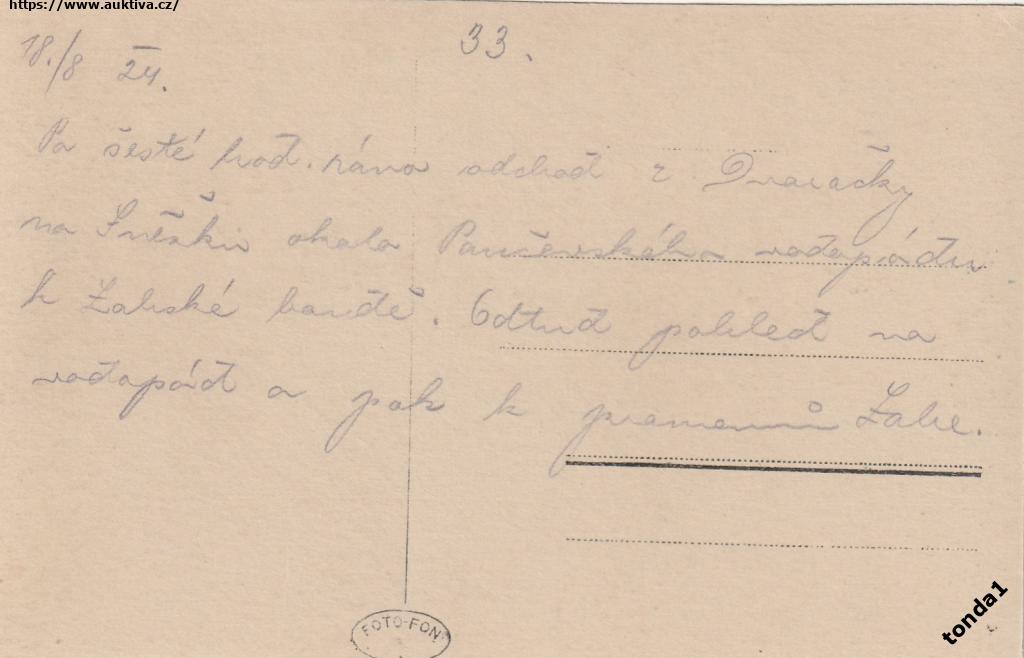 https://www.auktiva.cz/
18./8 24.
33.
Po šesté hod. ráno odchod z Dvoračky
na Sněžku okolo Pančevského vodopádu
k Labské boudě. Odtud pohled na
vodopád a pak k pramenům Labe.
FOTO-FON
tonda1